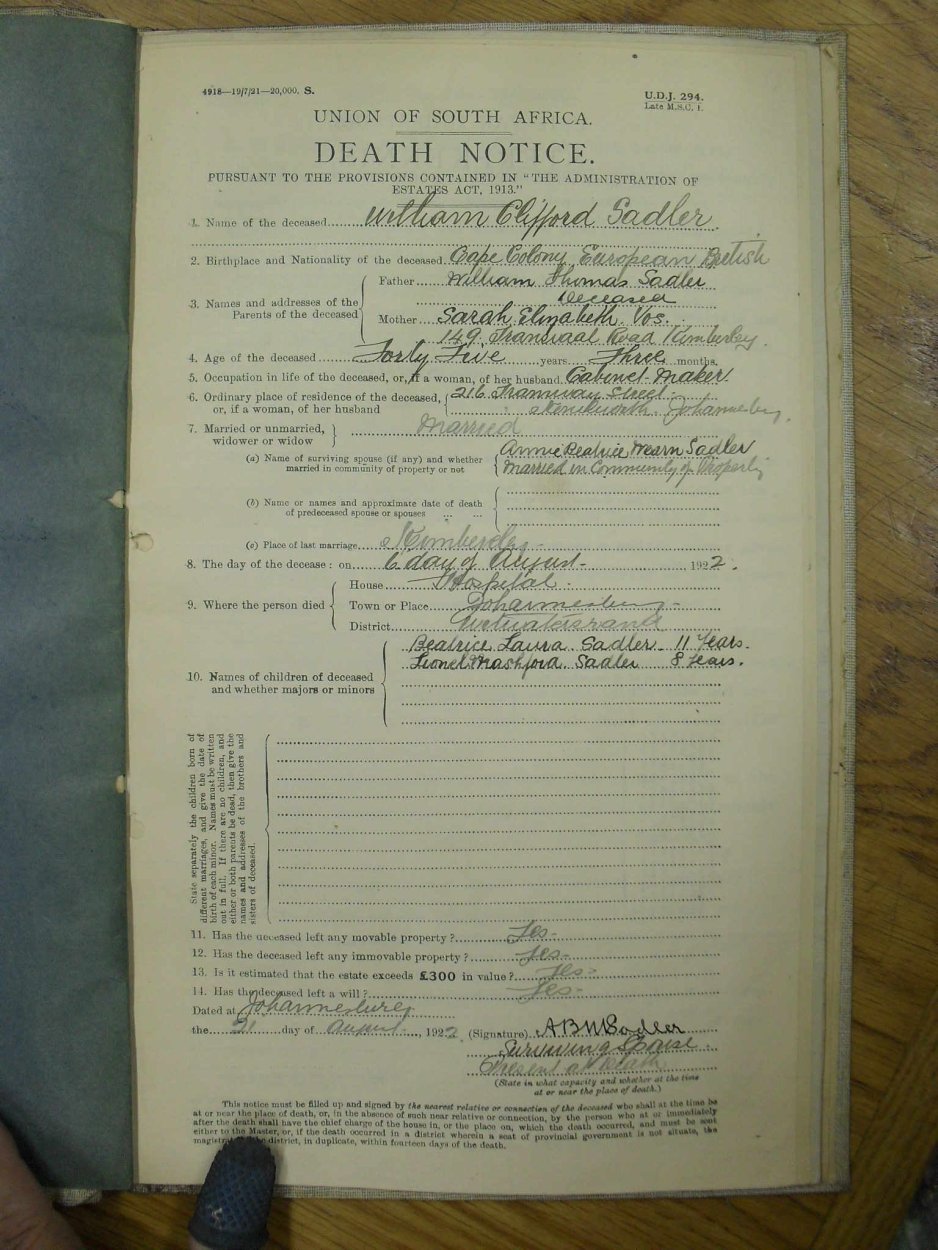 4918—19/7/21—20,000. S.
U.D.J. 294.
Late M.S.C. 1.
UNION OF SOUTH AFRICA.
DEATH NOTICE.
PURSUANT TO THE PROVISIONS CONTAINED IN "THE ADMINISTRATION OF
ESTATES ACT, 1913."
1. Name of the deceased William Clifford Sadler
2. Birthplace and Nationality of the deceased Cape Colony European British
3. Names and addresses of the Parents of the deceased
Father William Thomas Sadler
Deceased
Mother Sarah Elizabeth Vos.
149 Transvaal Road Kimberley.
4. Age of the deceased Forty Five years Three months.
5. Occupation in life of the deceased, or, if a woman, of her husband Cabinet-Maker.
6. Ordinary place of residence of the deceased, 216 Tramway Street
or, if a woman, of her husband Kenilworth. Johannesburg.
7. Married or unmarried, widower or widow Married
(a) Name of surviving spouse (if any) and whether Annie Beatrice Mearn Sadler
married in community of property or not Married in Community of Property
(b) Name or names and approximate date of death
of predeceased spouse or spouses ... ...
(c) Place of last marriage Kimberley
8. The day of the decease: on 6 day of August 1922.
9. Where the person died
House Hospital
Town or Place Johannesburg
District Witwatersrand
10. Names of children of deceased
and whether majors or minors
Beatrice Laura Sadler 11 Years.
Lionel Mashford Sadler 8 Years.
State separately the children born of
different marriages, and give the date of
birth of each minor. Names must be written
out in full. If there are no children, and
either or both parents be dead, then give the
names and addresses of the brothers and
sisters of deceased.
11. Has the deceased left any movable property? Yes-
12. Has the deceased left any immovable property? Yes-
13. Is it estimated that the estate exceeds £300 in value? Yes-
14. Has the deceased left a will? Yes-
Dated at Johannesburg
the 21 day of August, 1922 (Signature) ABMSadler
Surviving Spouse
Present at Death
(State in what capacity and whether at the time
at or near the place of death.)
This notice must be filled up and signed by the nearest relative or connection of the deceased who shall at the time be
at or near the place of death, or, in the absence of such near relative or connection, by the person who at or immediately
after the death shall have the chief charge of the house in, or the place on, which the death occurred, and must be sent
either to the Master, or, if the death occurred in a district wherein a seat of provincial government is not situate, the
district, in duplicate, within fourteen days of the death.